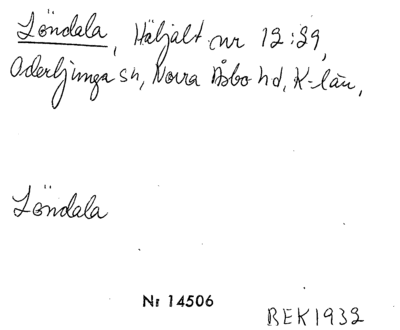 Löndala, Häljalt nr 12:29,
Oderljunga sn, Norra Åsbo hd, K-län,
Löndala
Nr 14506
BEK1932